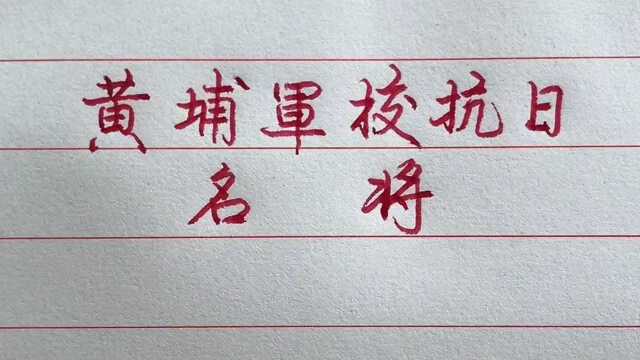 黄埔軍校抗日
名将